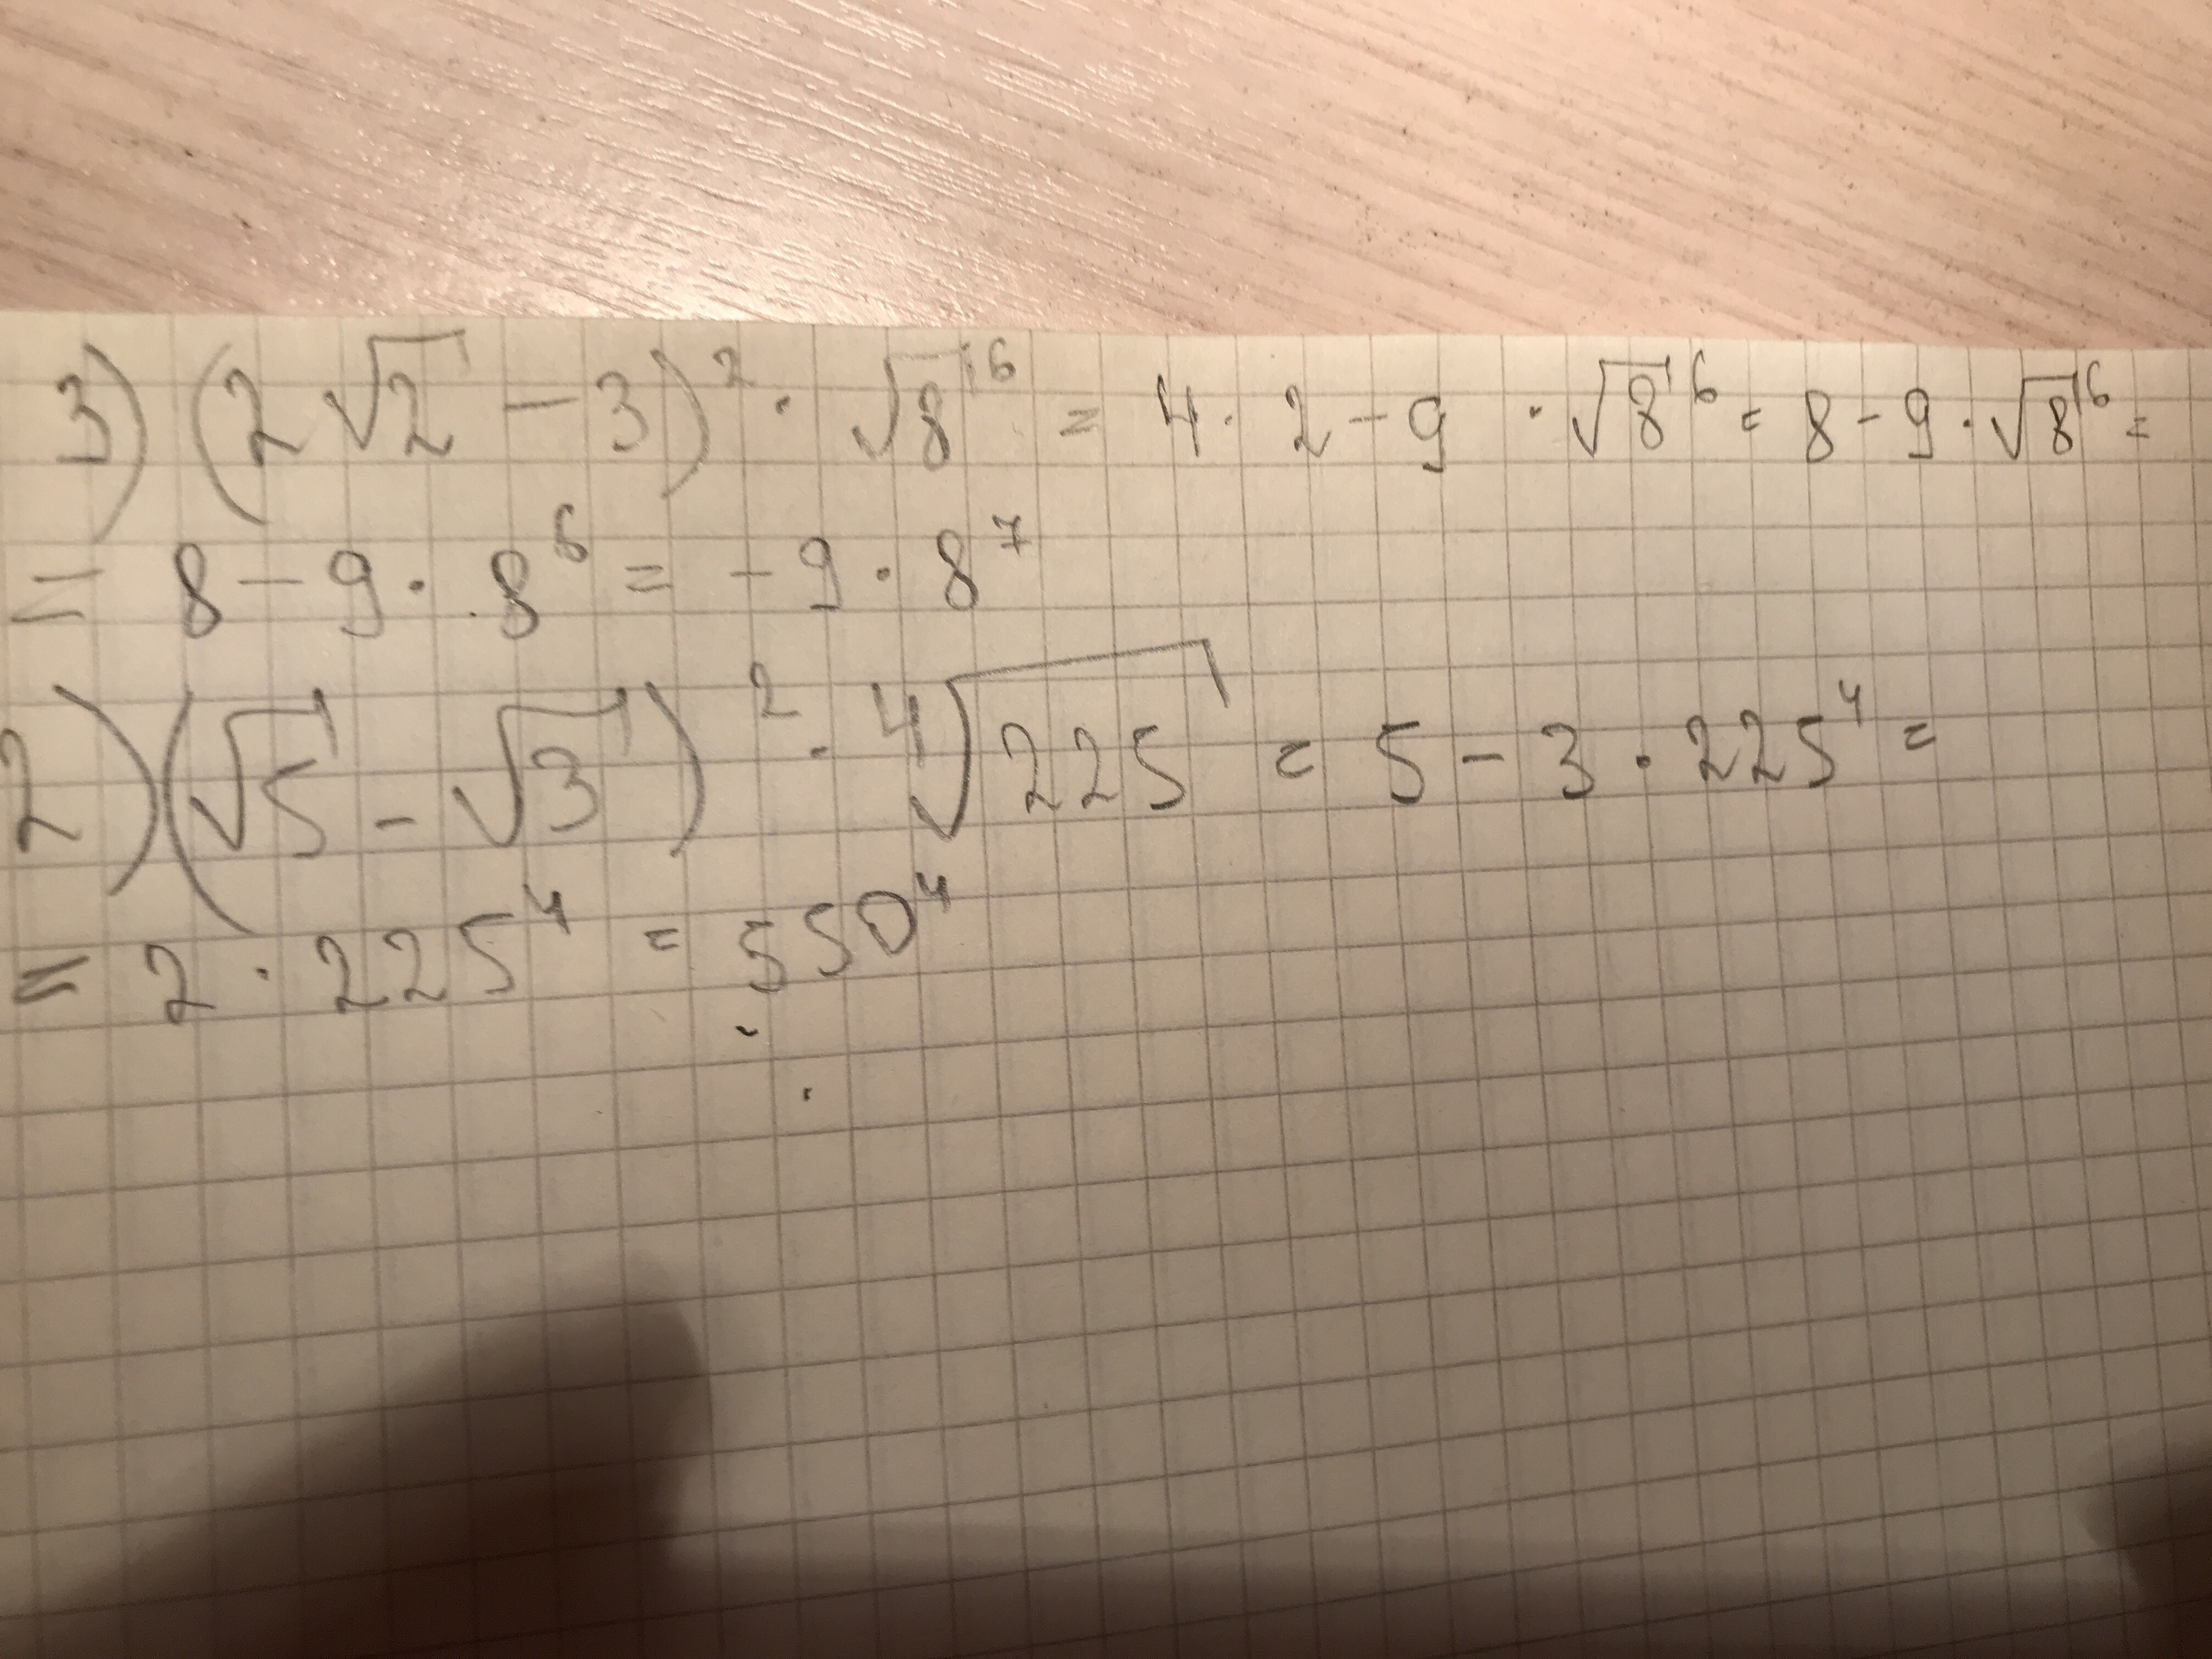 3) (2√2 - 3)² · √8⁶ = 4 · 2 - 9 · √8⁶ = 8 - 9 · √8⁶ =
= 8 - 9 · 8⁶ = - 9 · 8⁷
2) (√5 - √3)² · ⁴√225 = 5 - 3 · 225⁴ =
= 2 · 225⁴ = 550⁴